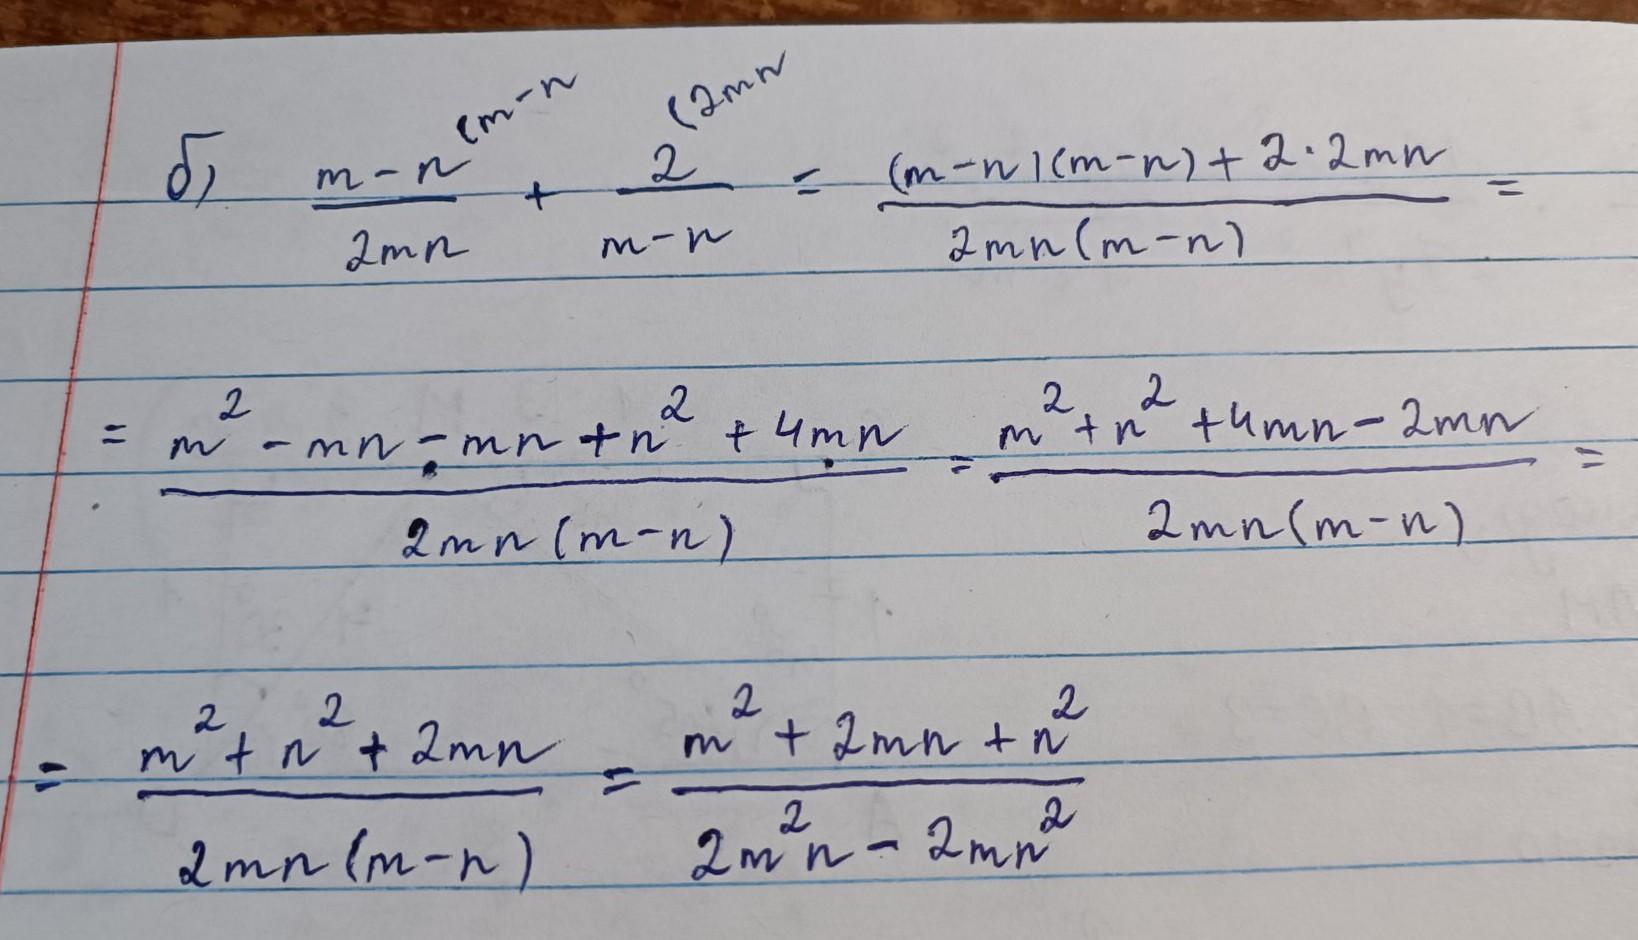 б) \frac{m-n^{(m-n}}{2mn} + \frac{2^{(2mn}}{m-n} = \frac{(m-n)(m-n)+2·2mn}{2mn(m-n)} =
= \frac{m^2-mn-mn+n^2+4mn}{2mn(m-n)} = \frac{m^2+n^2+4mn-2mn}{2mn(m-n)} =
= \frac{m^2+n^2+2mn}{2mn(m-n)} = \frac{m^2+2mn+n^2}{2m^2n-2mn^2}